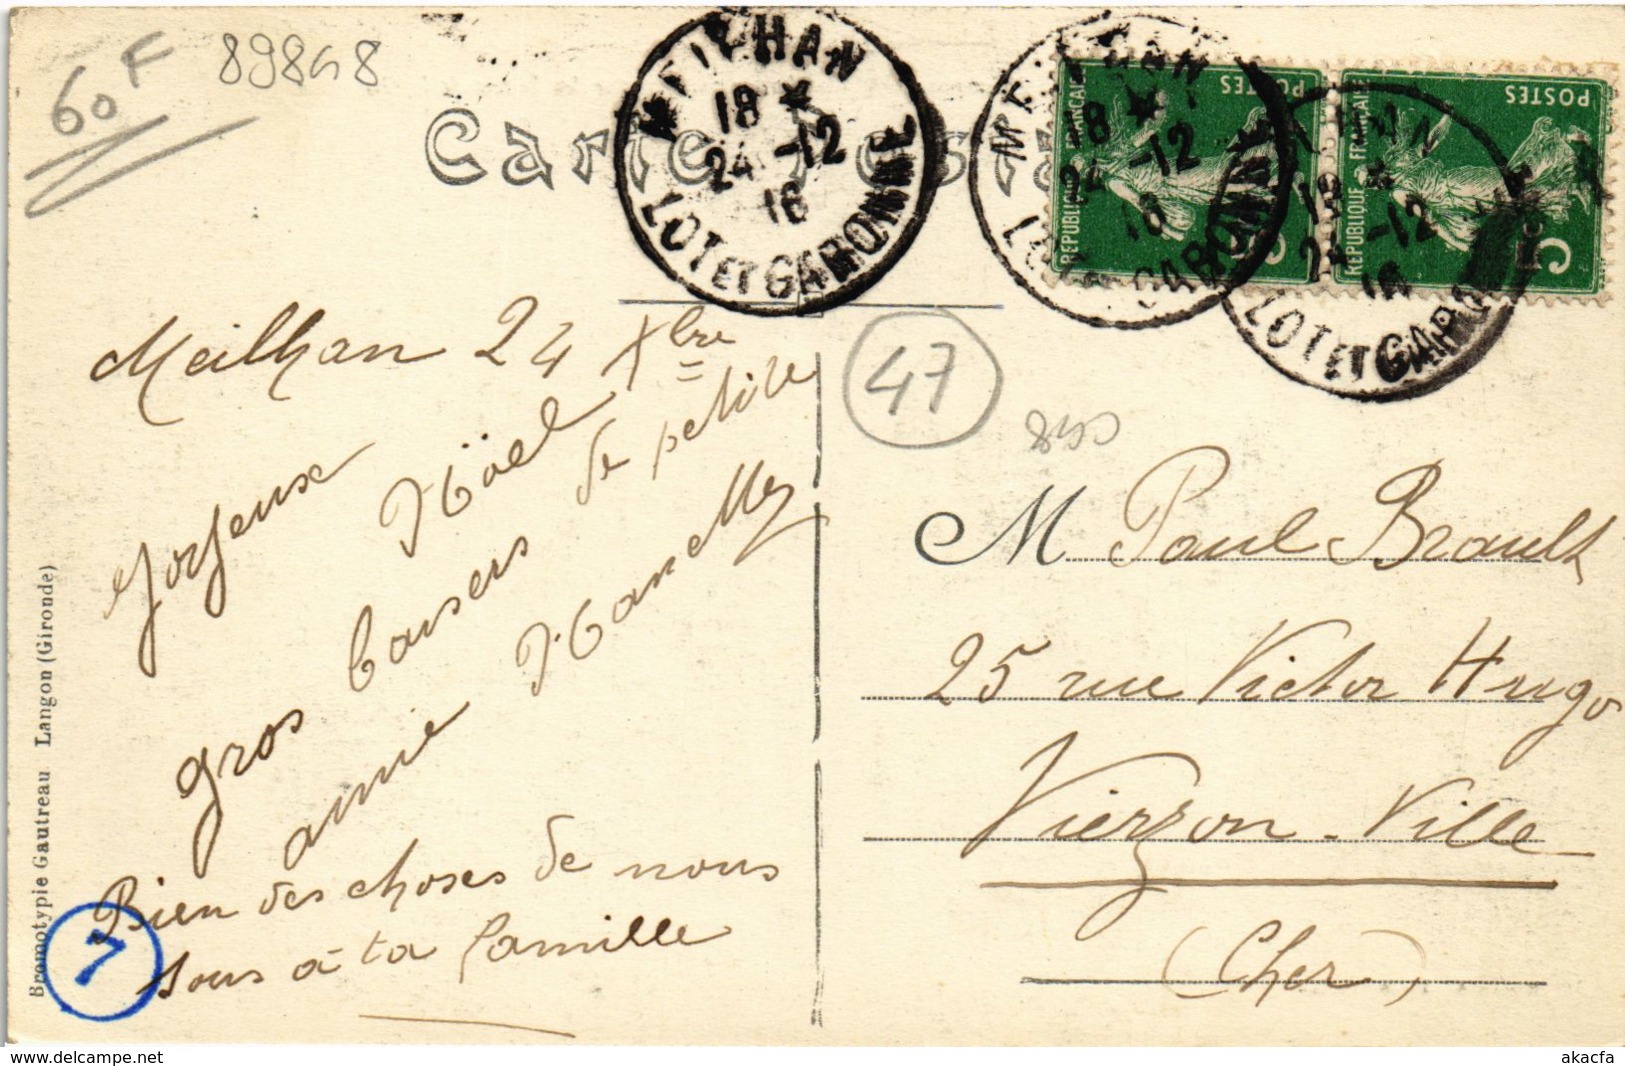 60 F
89848
Carte
MEILHAN
18 *
24 -12
16
LOT ET GARONNE
MEILHAN
18 *
24 -12
16
LOT ET GARONNE
18 *
24 -12
16
LOT ET GARONNE
POSTES
REPUBLIQUE FRANÇAISE
POSTES
REPUBLIQUE FRANÇAISE
5c
47
Meilhan 24 Xbre
Joyeux Noël
gros baisers de petite
amie
Bien des choses de nous
tous à ta famille
M Paul Brault
25 rue Victor Hugo
Vierzon-Ville
(Cher)
Bromotypie Gautreau Langon (Gironde)
7
delcampe.net
akacfa